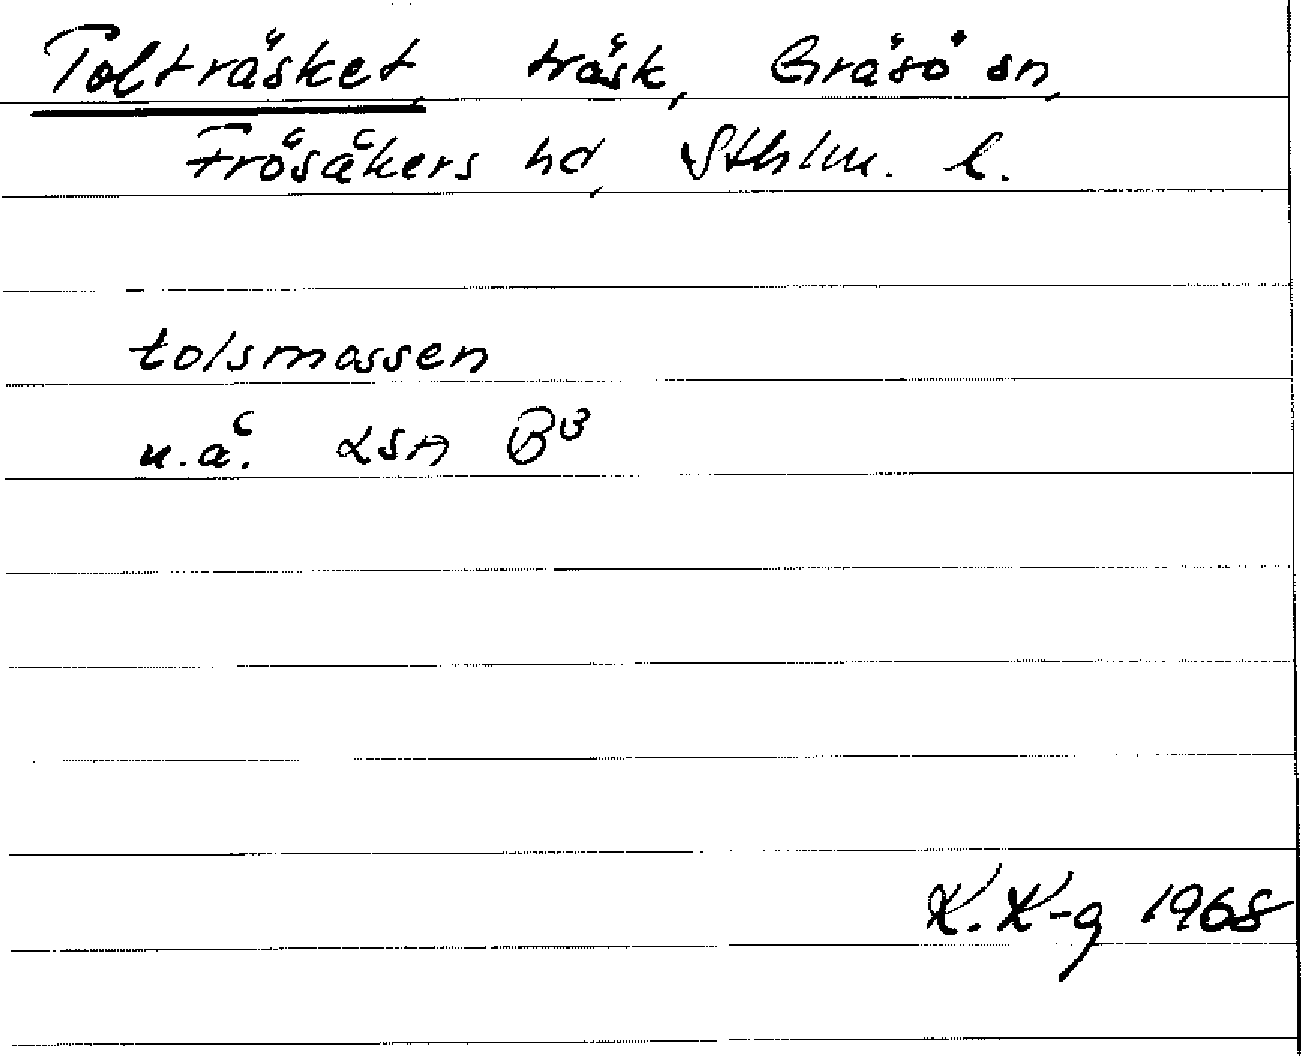 Tolträsket, träsk, Gräsö sn,
Frösåkers hd, Sthlm. l.
tolsmossen
u.å. LSA B³
K. K-g 1968